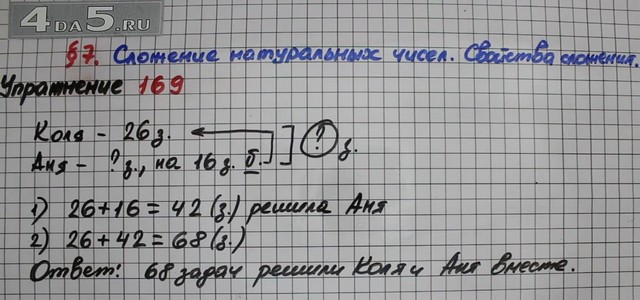 4DA5.RU
§7. Сложение натуральных чисел. Свойства сложения.
Упражнение 169
Коля - 26 з.
Аня - ? з., на 16 з. б. ? з.
1) 26+16=42 (з.) решила Аня
2) 26+42=68 (з.)
Ответ: 68 задач решили Коля и Аня вместе.